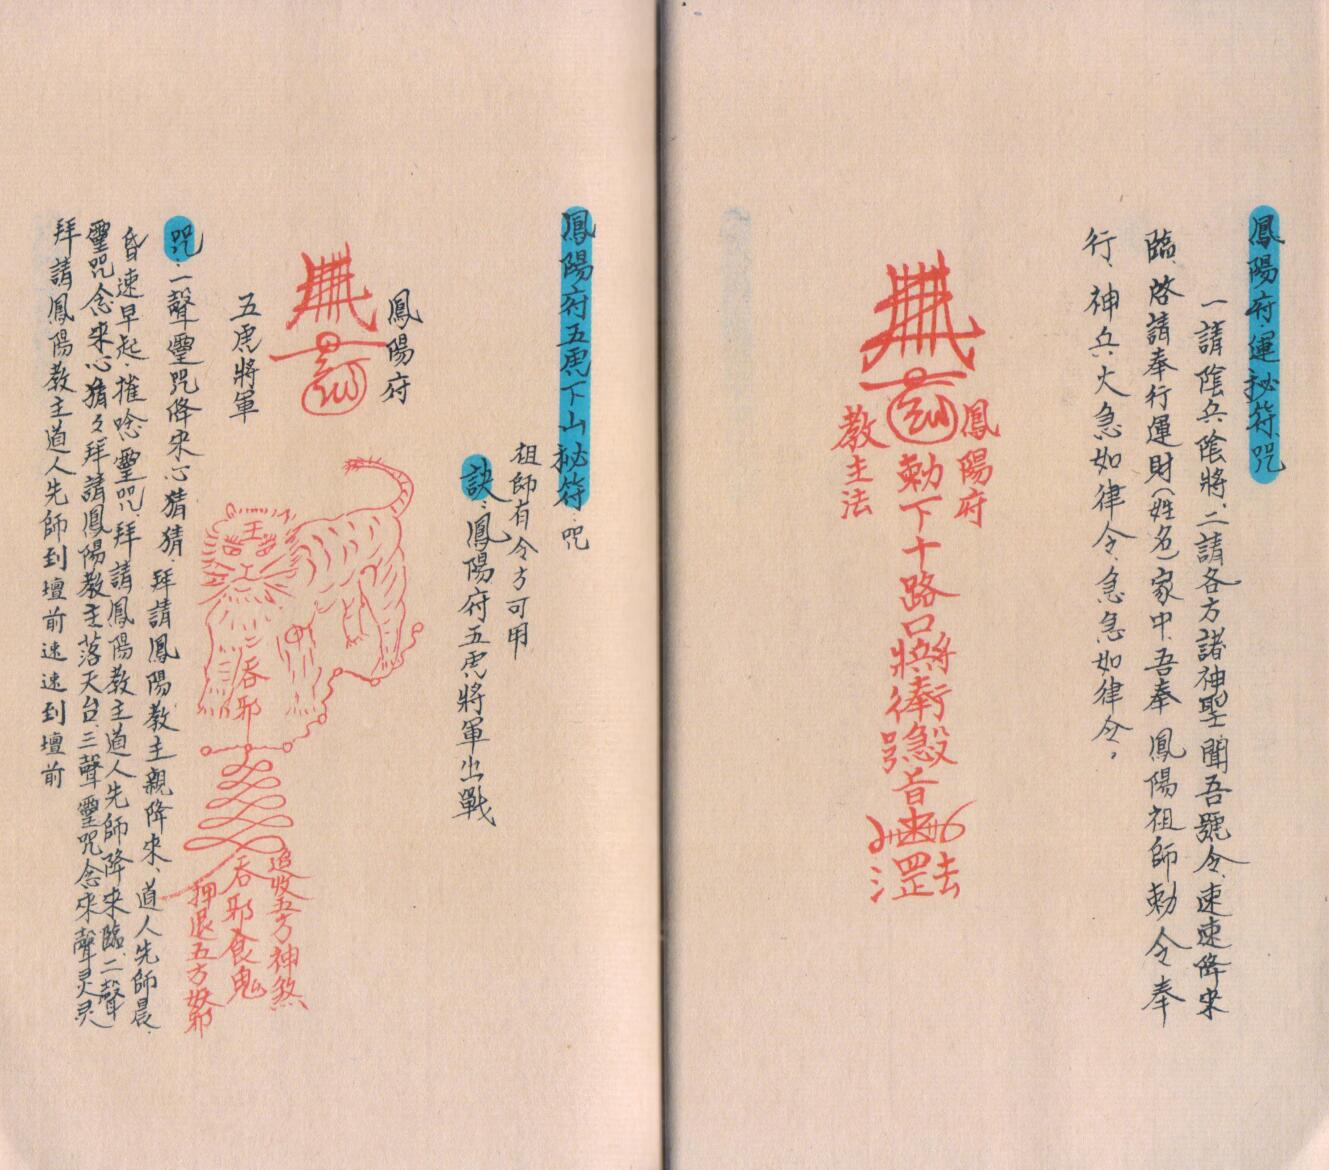 鳳陽府運秘符咒
一請陰兵陰將、二請各方諸神聖、聞吾號令、速速降來
臨、啓請奉行運財(姓名)家中、吾奉鳳陽祖師勅令奉
行、神兵火急如律令、急急如律令,
鳳陽府
勅下十路口將
旨
教主法
法
罡
鳳陽府五虎下山秘符、咒
祖師有令方可用
訣、鳳陽府五虎將軍出戰
鳳陽府
五虎將軍
王
吞邪
追收五方神煞
吞邪食鬼
押退五方妖邪
咒、一聲靈咒降來心猜猜、拜請鳳陽教主親降來、道人先師晨、
昏速早起、摧唸靈咒、拜請鳳陽教主道人先師降來臨、二聲
靈咒念來心猜々拜請鳳陽教主落天台、三聲靈咒念來聲灵灵
拜請鳳陽教主道人先師到壇前速速到壇前